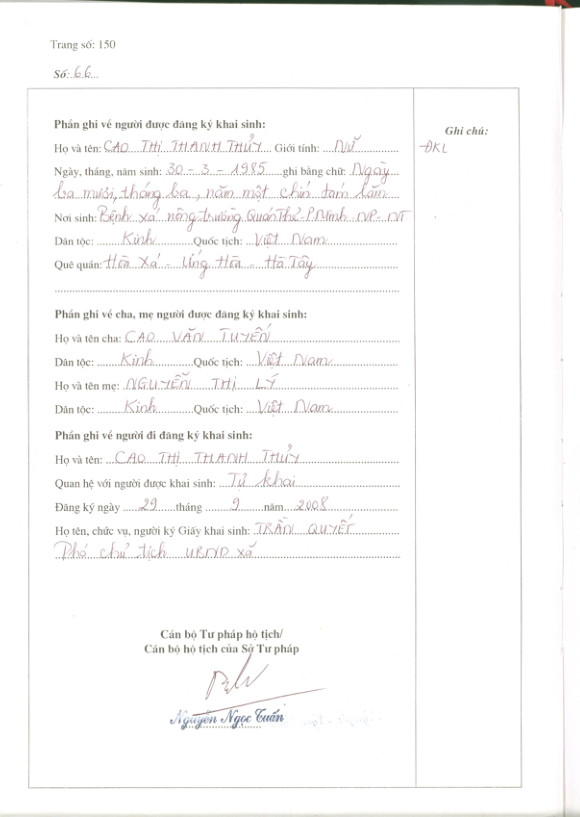 Trang số: 150
Số: 66
Phần ghi về người được đăng ký khai sinh:
Ghi chú:
Họ và tên: CAO THỊ THANH THỦY Giới tính: Nữ
ĐKL
Ngày, tháng, năm sinh: 30 - 3 - 1985 ghi bằng chữ: Ngày
ba mươi, tháng ba, năm một chín tám lăm
Nơi sinh: Bệnh xá nông trường Quán Thẻ - P.Minh - NP - NT
Dân tộc: Kinh Quốc tịch: Việt Nam
Quê quán: Hòa Xá - Ứng Hòa - Hà Tây
Phần ghi về cha, mẹ người được đăng ký khai sinh:
Họ và tên cha: CAO VĂN TUYẾN
Dân tộc: Kinh Quốc tịch: Việt Nam
Họ và tên mẹ: NGUYỄN THỊ LÝ
Dân tộc: Kinh Quốc tịch: Việt Nam
Phần ghi về người đi đăng ký khai sinh:
Họ và tên: CAO THỊ THANH THỦY
Quan hệ với người được khai sinh: Tự khai
Đăng ký ngày 29 tháng 9 năm 2008
Họ tên, chức vụ, người ký Giấy khai sinh: TRẦN QUYẾT
Phó chủ tịch UBND xã
Cán bộ Tư pháp hộ tịch/
Cán bộ hộ tịch của Sở Tư pháp
Nguyễn Ngọc Tuấn